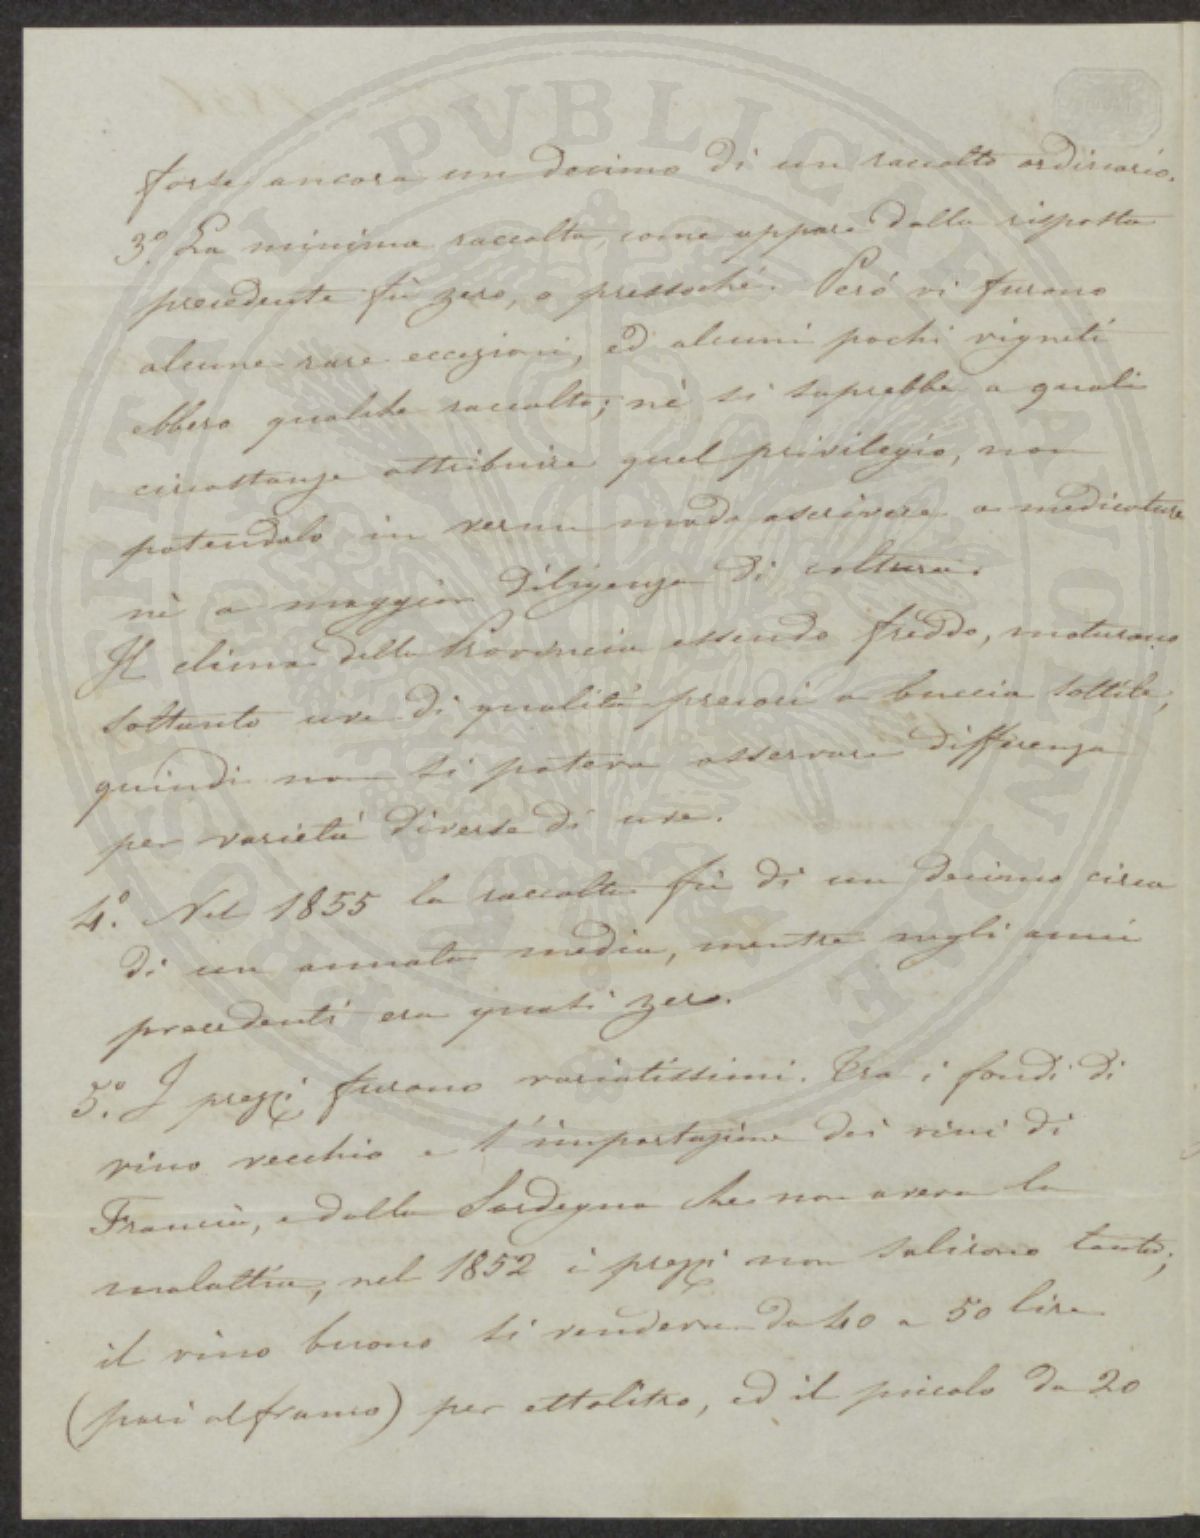 forse ancora un decimo di un raccolto ordinario.
3.º La minima raccolta, come appare dalla risposta
precedente fù zero, o pressochè. Però vi furono
alcune rare eccezioni, ed alcuni pochi vigneti
ebbero qualche raccolto; nè si saprebbe a quali
circostanze attribuire quel privilegio, non
potendolo in verun modo ascrivere a medicature
nè a maggior diligenza di coltura.
Il clima della Provincia essendo freddo, maturano
soltanto uve di qualità precoci a buccia sottile,
quindi non si poteva osservare differenza
per varietà diverse di uve.
4.º Nel 1855 la raccolta fù di un decimo circa
di un annata media, mentre negli anni
precedenti era quasi zero.
5.º I prezzi furono variatissimi. Tra i fondi di
vino vecchio e l'importazione dei vini di
Francia, e dalla Sardegna che non aveva la
malattia, nel 1852 i prezzi non salirono tanto;
il vino buono si vendeva da 40 a 50 lire
(pari al franco) per ettolitro, ed il piccolo da 20